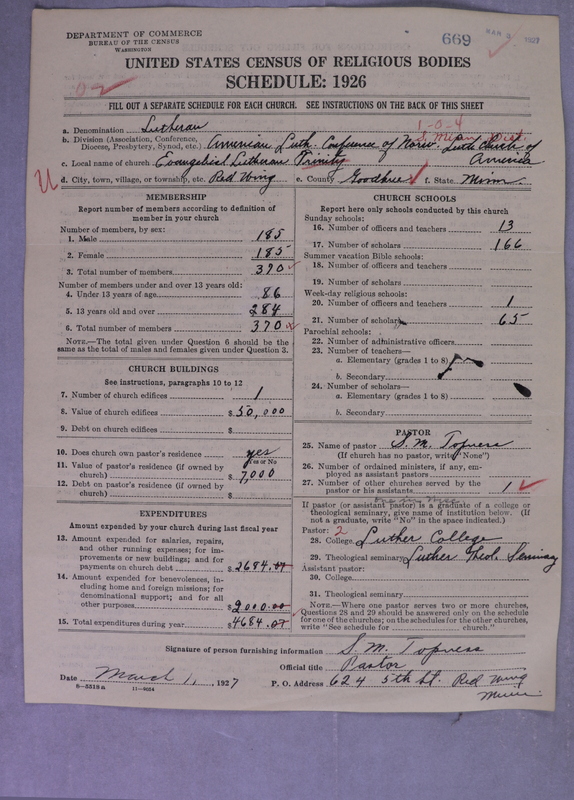 DEPARTMENT OF COMMERCE
BUREAU OF THE CENSUS
WASHINGTON
669
MAR 3 1927
UNITED STATES CENSUS OF RELIGIOUS BODIES
SCHEDULE: 1926
FILL OUT A SEPARATE SCHEDULE FOR EACH CHURCH. SEE INSTRUCTIONS ON THE BACK OF THIS SHEET
1-0-4
a. Denomination Lutheran
b. Division (Association, Conference, Diocese, Presbytery, Synod, etc.) American Luth. Conference of Norw. Luth Church of America
S. Minn Dist.
c. Local name of church Evangelist Lutheran Trinity
d. City, town, village, or township, etc. Red Wing e. County Goodhue f. State Minn.
MEMBERSHIP
Report number of members according to definition of member in your church
Number of members, by sex:
1. Male 185
2. Female 185
3. Total number of members 370
Number of members under and over 13 years old:
4. Under 13 years of age 86
5. 13 years old and over 284
6. Total number of members 370
NOTE.—The total given under Question 6 should be the same as the total of males and females given under Question 3.
CHURCH BUILDINGS
See instructions, paragraphs 10 to 12
7. Number of church edifices 1
8. Value of church edifices $50,000
9. Debt on church edifices $
10. Does church own pastor's residence yes
Yes or No
11. Value of pastor's residence (if owned by church) $7,000
12. Debt on pastor's residence (if owned by church) $
EXPENDITURES
Amount expended by your church during last fiscal year
13. Amount expended for salaries, repairs, and other running expenses; for improvements or new buildings; and for payments on church debt $2684.07
14. Amount expended for benevolences, including home and foreign missions; for denominational support; and for all other purposes $2000.00
15. Total expenditures during year $4684.07
CHURCH SCHOOLS
Report here only schools conducted by this church
Sunday schools:
16. Number of officers and teachers 13
17. Number of scholars 166
Summer vacation Bible schools:
18. Number of officers and teachers
19. Number of scholars
Week-day religious schools:
20. Number of officers and teachers 1
21. Number of scholars 65
Parochial schools:
22. Number of administrative officers
23. Number of teachers—
a. Elementary (grades 1 to 8)
b. Secondary
24. Number of scholars—
a. Elementary (grades 1 to 8)
b. Secondary
PASTOR
25. Name of pastor S. M. Topness
(If church has no pastor, write "None")
26. Number of ordained ministers, if any, employed as assistant pastors
27. Number of other churches served by the pastor or his assistants 1
If pastor (or assistant pastor) is a graduate of a college or theological seminary, give name of institution below. (If not a graduate, write "No" in the space indicated.)
Pastor: 2
28. College Luther College
29. Theological seminary Luther Theol. Seminary
Assistant pastor:
30. College
31. Theological seminary
NOTE.—Where one pastor serves two or more churches, Questions 28 and 29 should be answered only on the schedule for one of the churches; on the schedules for the other churches, write "See schedule for church."
Signature of person furnishing information S. M. Topness
Official title Pastor
Date March 1, 1927
P. O. Address 624 5th St. Red Wing Minn.
8-5318a 11-4024